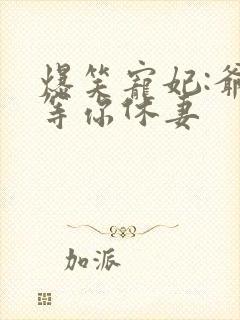 爆笑寵妃:爺
等你休妻
加派